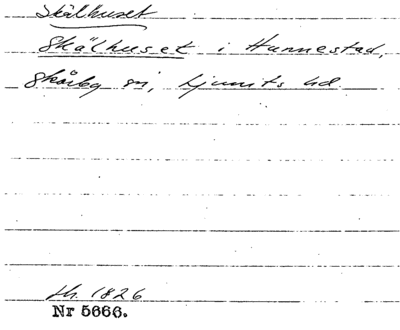 Skälhuset
Skälhuset i Hunnestad,
Skårby sn, Ljunits hd.
fh. 1826
Nr 5666.